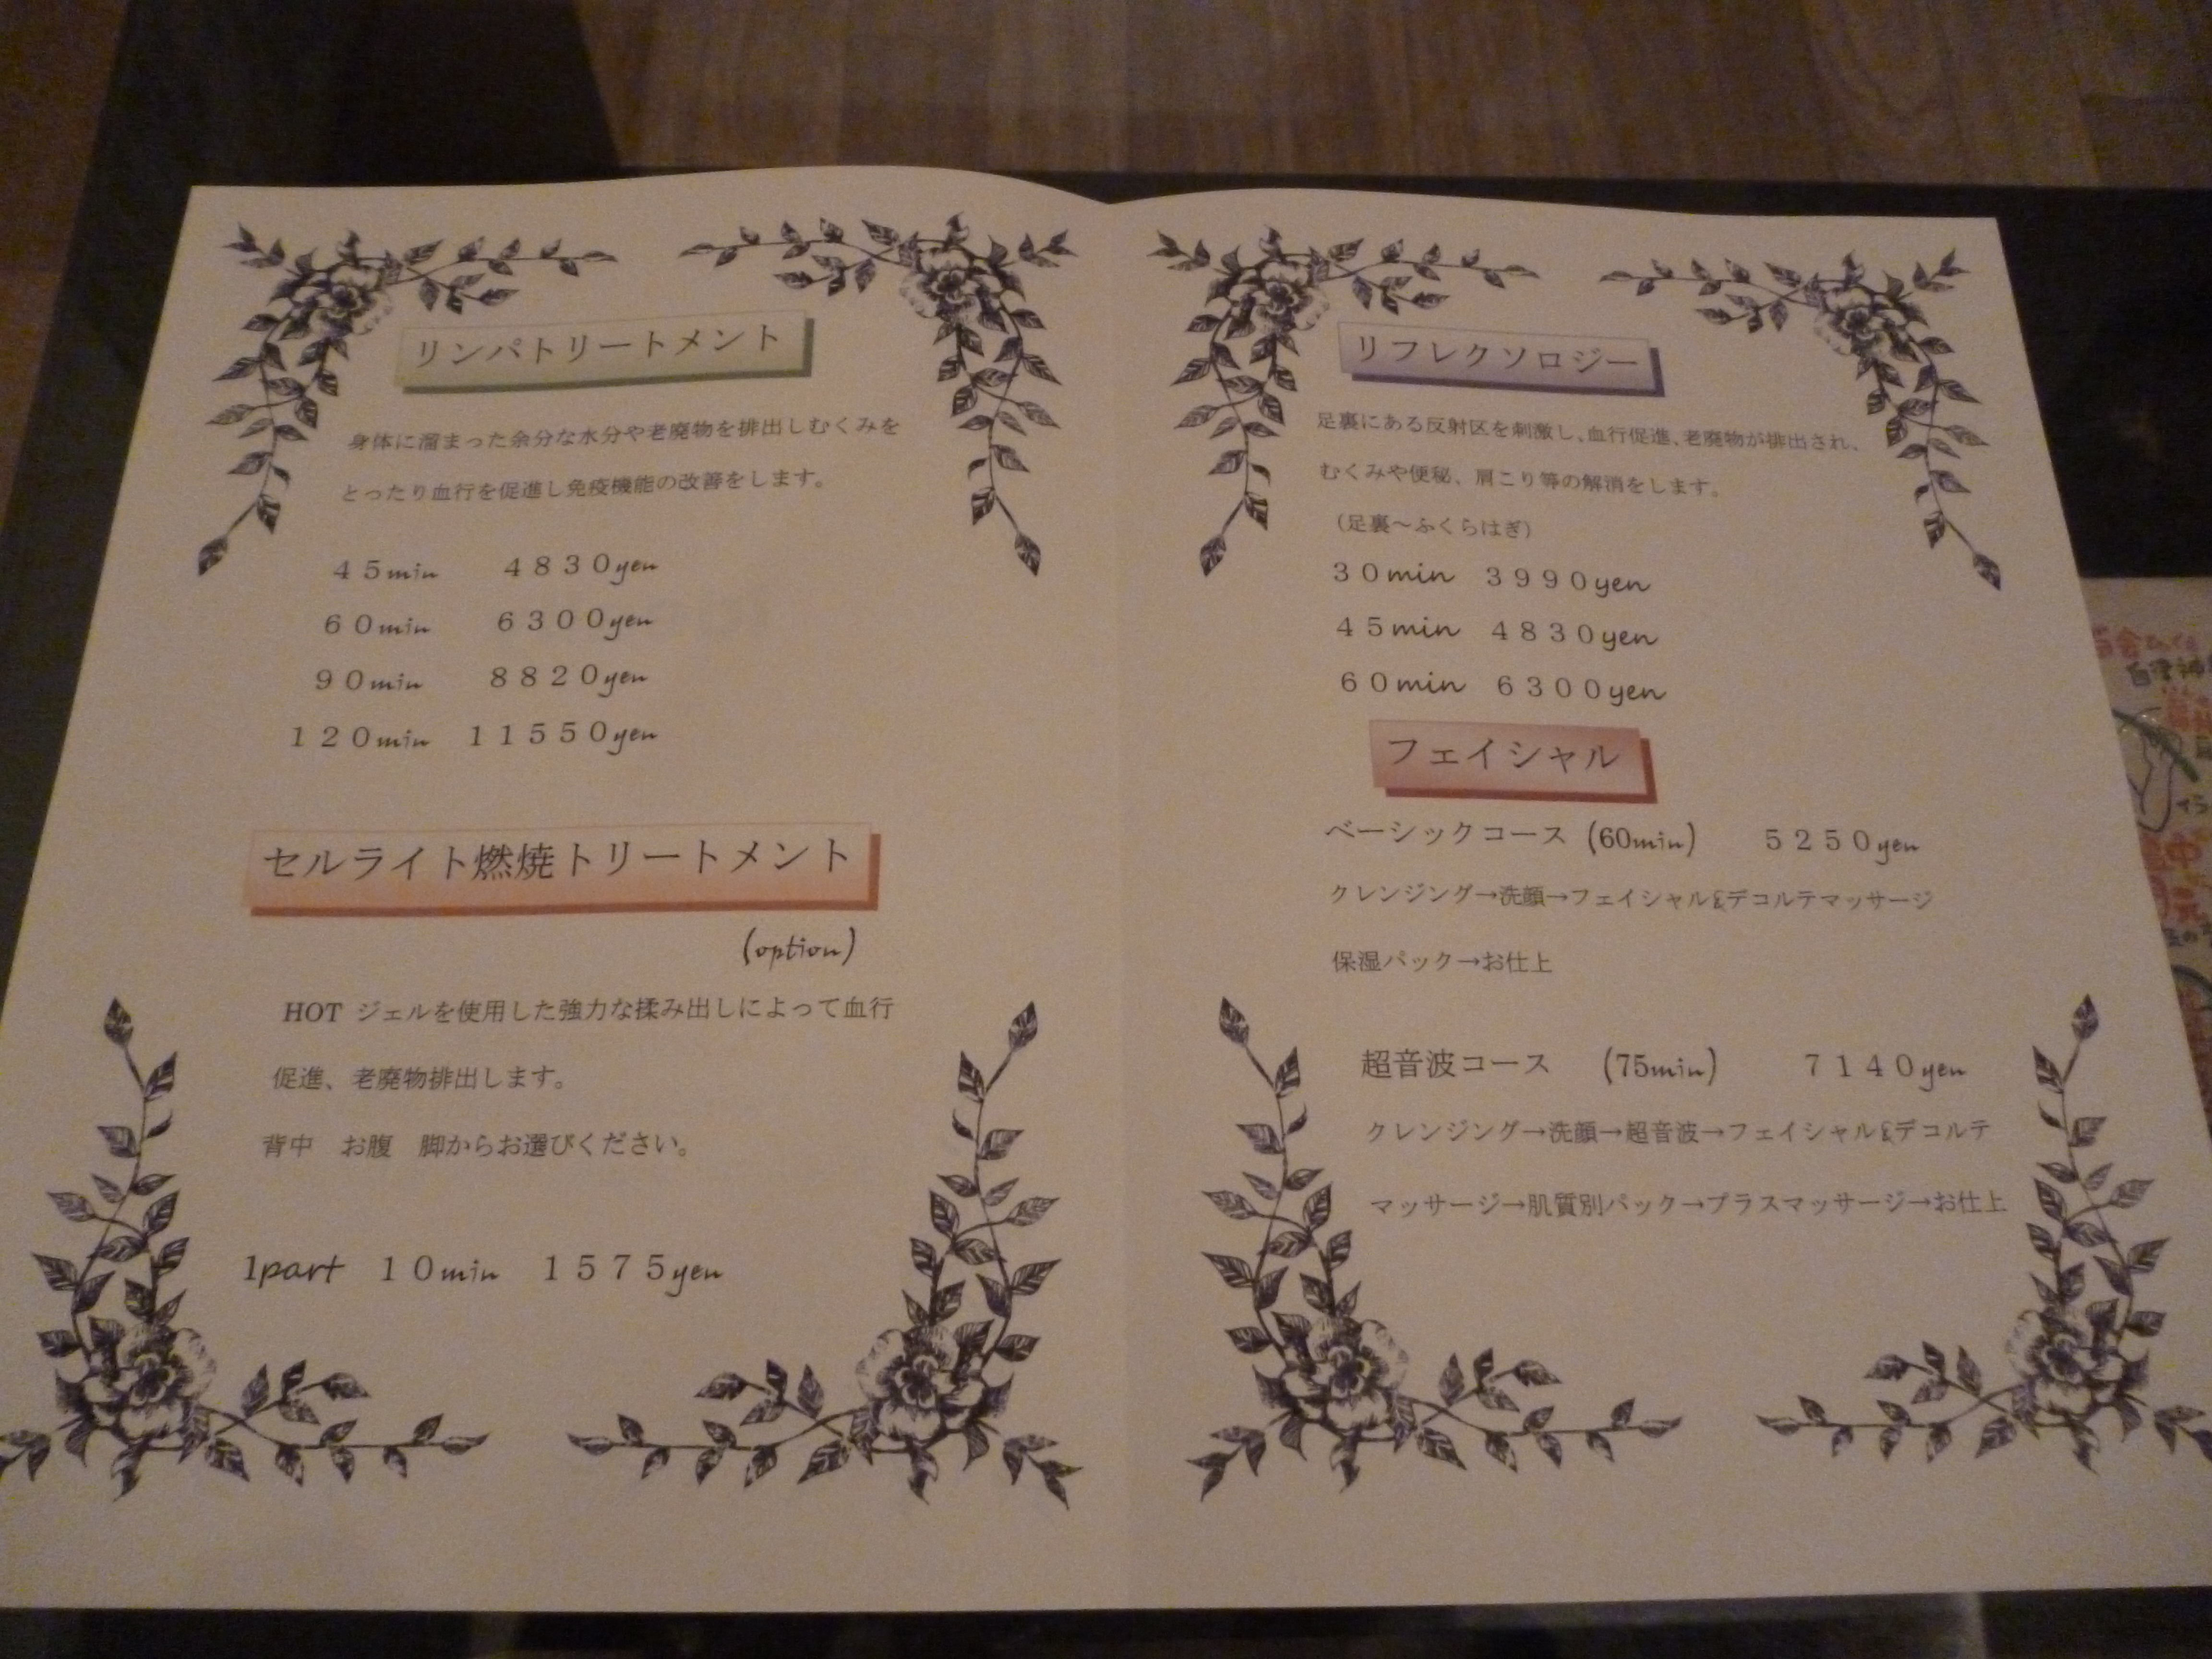 リンパトリートメント
身体に溜まった余分な水分や老廃物を排出しむくみを
とったり血行を促進し免疫機能の改善をします。
45min 4830yen
60min 6300yen
90min 8820yen
120min 11550yen
セルライト燃焼トリートメント
(option)
HOT ジェルを使用した強力な揉み出しによって血行
促進、老廃物排出します。
背中 お腹 脚からお選びください。
1part 10min 1575yen
リフレクソロジー
足裏にある反射区を刺激し、血行促進、老廃物が排出され、
むくみや便秘、肩こり等の解消をします。
（足裏～ふくらはぎ）
30min 3990yen
45min 4830yen
60min 6300yen
フェイシャル
ベーシックコース (60min) 5250yen
クレンジング→洗顔→フェイシャル&デコルテマッサージ
保湿パック→お仕上
超音波コース (75min) 7140yen
クレンジング→洗顔→超音波→フェイシャル&デコルテ
マッサージ→肌質別パック→プラスマッサージ→お仕上